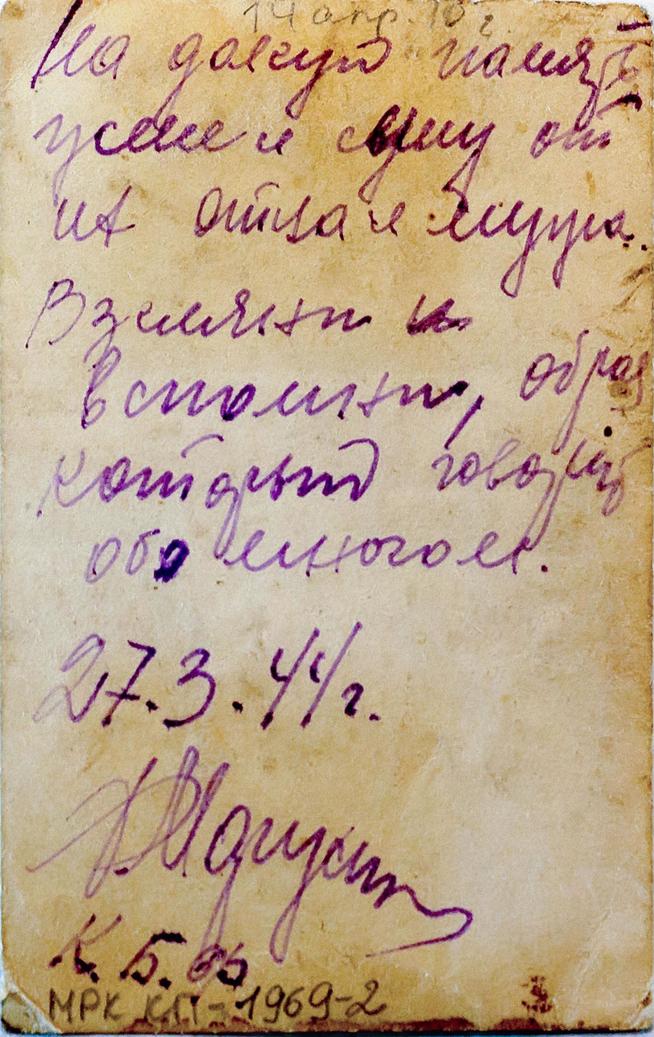 14 апр. 10 г.
На долгую память
жене и сыну от
их отца и мужа.
Взгляни и
вспомни, образ
который говорит
обо многом.
27.3.44 г.
К. Б. ф
МРК КП-1969-2